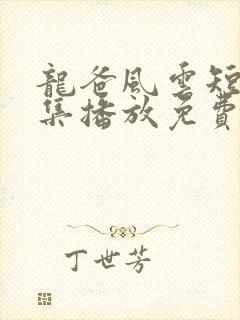 龍爸風雲短
集播放免費
丁世芳